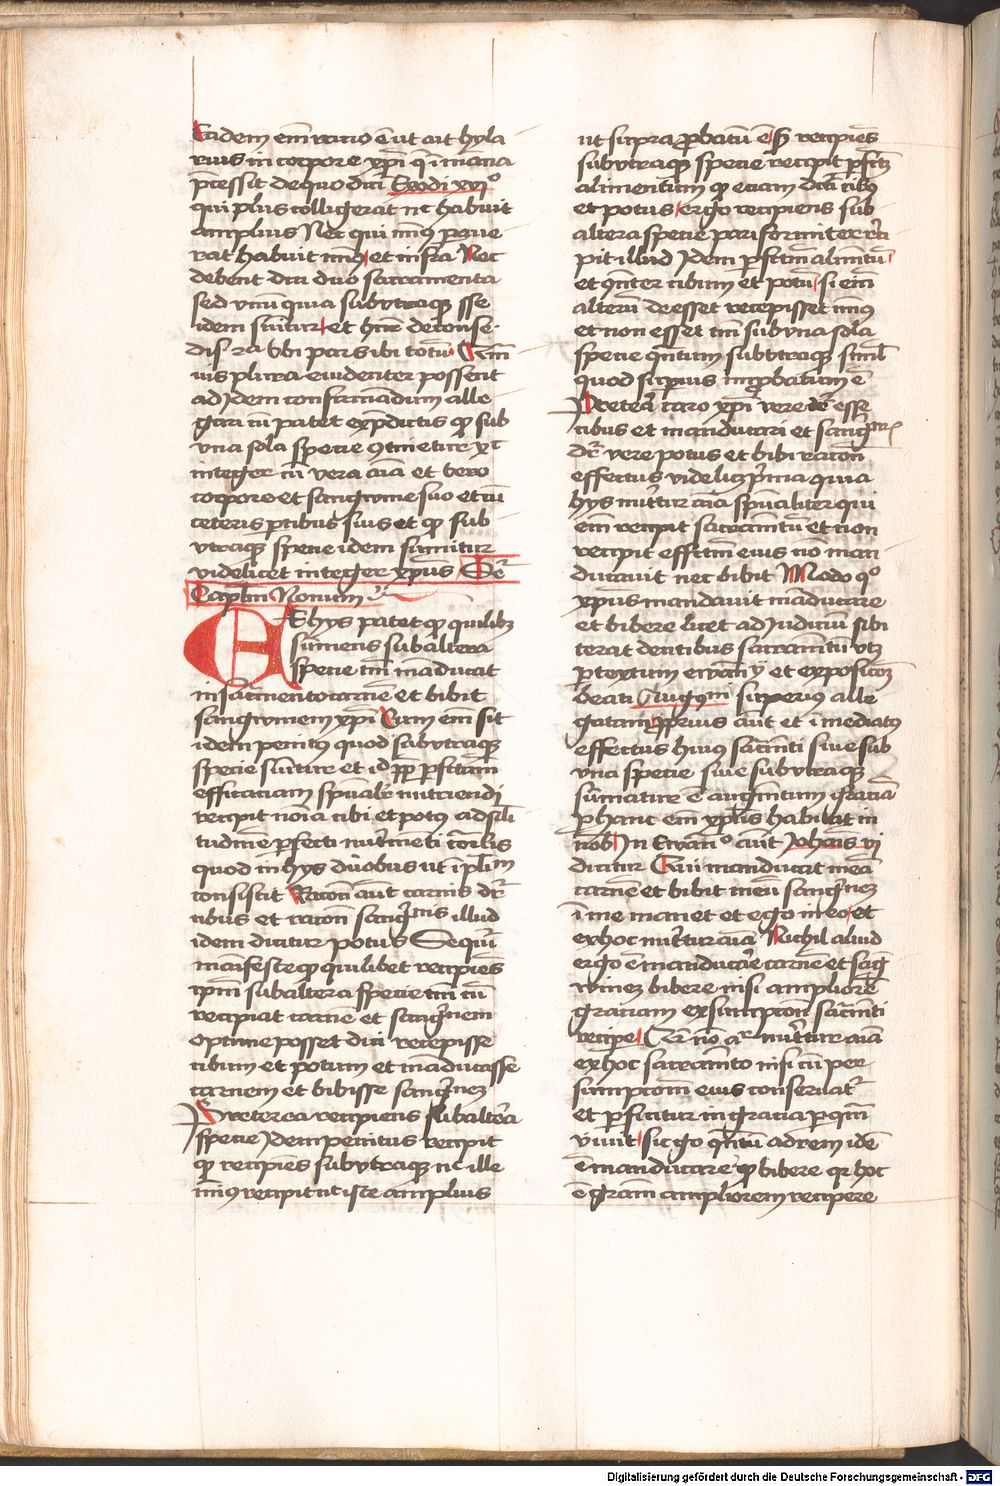 Eadem em̅ racio e̅ ut ait hyla
rius in corpore xp̅i q̅ i̅ mana
p̅cessit de quo dicit̅ Exodi xvjº
qui plus colligerat nc̅ habuit
amplius Nec qui min9 paue
rat habuit min9 et infra Nec
debent dici duo sacramenta
sed vnu̅ quia sub vtraq̅ sse
idem su̅itur et
vbi pars ibi totu̅
uis plura euidenter possent
ad idem confirmandum alle
gari tn̅ patet ex p̅dictis q̅ sub
vna sola specie 9tinetur xc
integer cu̅ vera ai̅a et vero
corpore et sangwine suo et cu̅
ceteris p̅tibus suis et q̅ sub
vtraq̅ specie idem sumitur
videlicet integer xp̅us
Cap̅lm Nonum
Ex hys patet q̅ quilibz
sumens sub altera
specie tm̅ ma̅ducat
in sacr̅mento carne̅ et bibit
sangwinem xp̅i Cum em̅ sit
idem penit9 quod sub vtraq̅
specie su̅itur et id p̅p̅ p̅fcta̅m
efficaciam sp̅ual̅r nutriendi
recipit no̅ia cibi et potus ad si̅li
tudine̅ p̅fecti nutr̅menti
quod in hys duobus ut i̅ pl̅im
consistit Racon̅ aut̅ carnis dr̅
cibus et racon̅ sangw̅nis illud
idem dicitur potus Sequit̅
manifeste q̅ quilibet recipiens
xp̅m sub altera specie tm̅ cu̅
recipiat carne̅ et sangw̅nem
optime posset dici recepisse
cibum et potum et ma̅ducasse
carnem et bibisse sangw̅nez
Preterea recipiens sub alter̅a
specie idem penitus recipit
q̅ recipiens sub vtraq̅ nc̅ ille
min9 recipit nc̅ iste amplius
ut supra p̅batu̅ e̅ S̅ recipie̅s
sub vtraq̅ specie recipit p̅fctu̅
alimentum q̅ eciam dicit̅ cibus
et potus ergo recipiens sub
altera specie pariformiter reci
pit illud idem p̅fectum alime̅tu̅
et q̅nter cibum et potu̅ si em̅
alteru̅ deesset recepisset min9
et non esset tm̅ sub vna sola
specie q̅ntum sub vtraq̅ simul
quod superius improbatum e̅
Preterea caro xp̅i vere dr̅ esse
cibus et manducari et
dr̅ vere potus et bibi racon̅e
effectus videlicz p̅ma quia
hys nutr̅itur ai̅a sp̅ualiter qui
em̅ recipit sacr̅amentu̅ et non
recipit effc̅tum eius no̅ man
ducauit nec bibit Modo qº
xp̅us mandauit ma̅ducare
et bibere licet ad iudicium sibi
terat dentibus sacramentu̅ vtz
p̅ textum ewan̅y et exposic̅oem
beati Augusti̅ superius alle
gatam Prius aut̅ et i̅mediatus
effectus huius sacr̅mti siue sub
vna specie siue sub vtraq̅
sumatur e̅ augme̅tum gracia̅
p̅ hanc em̅ xp̅us habitat in
nob̅ In Ewanº aut̅ Joh̅is vj
dicitur Qui manducat mea̅
carne̅ et bibit meu̅ sangw̅nez
i̅ me manet et ego in eo et
ex hoc nutr̅itur ai̅a Nichil aliud
ergo e̅ manducare carne̅ et sa̅g
winez bibere nisi ampliore̅
graciam ex sumpcon̅ sacr̅mti
recipe̅ Cu̅ no̅ ar̅ nutr̅itur ai̅a
ex hoc sacramento nisi cu̅ per
sumpcom̅ eius conseruat̅
et p̅ficitur in gracia p̅ qua̅m
viuit sic go q̅ntu̅ ad rem ide̅
e̅ manducare q̅ bibere qr̅ hoc
e̅ gram̅ ampliorem recipere
Digitalisierung gefördert durch die Deutsche Forschungsgemeinschaft - DFG